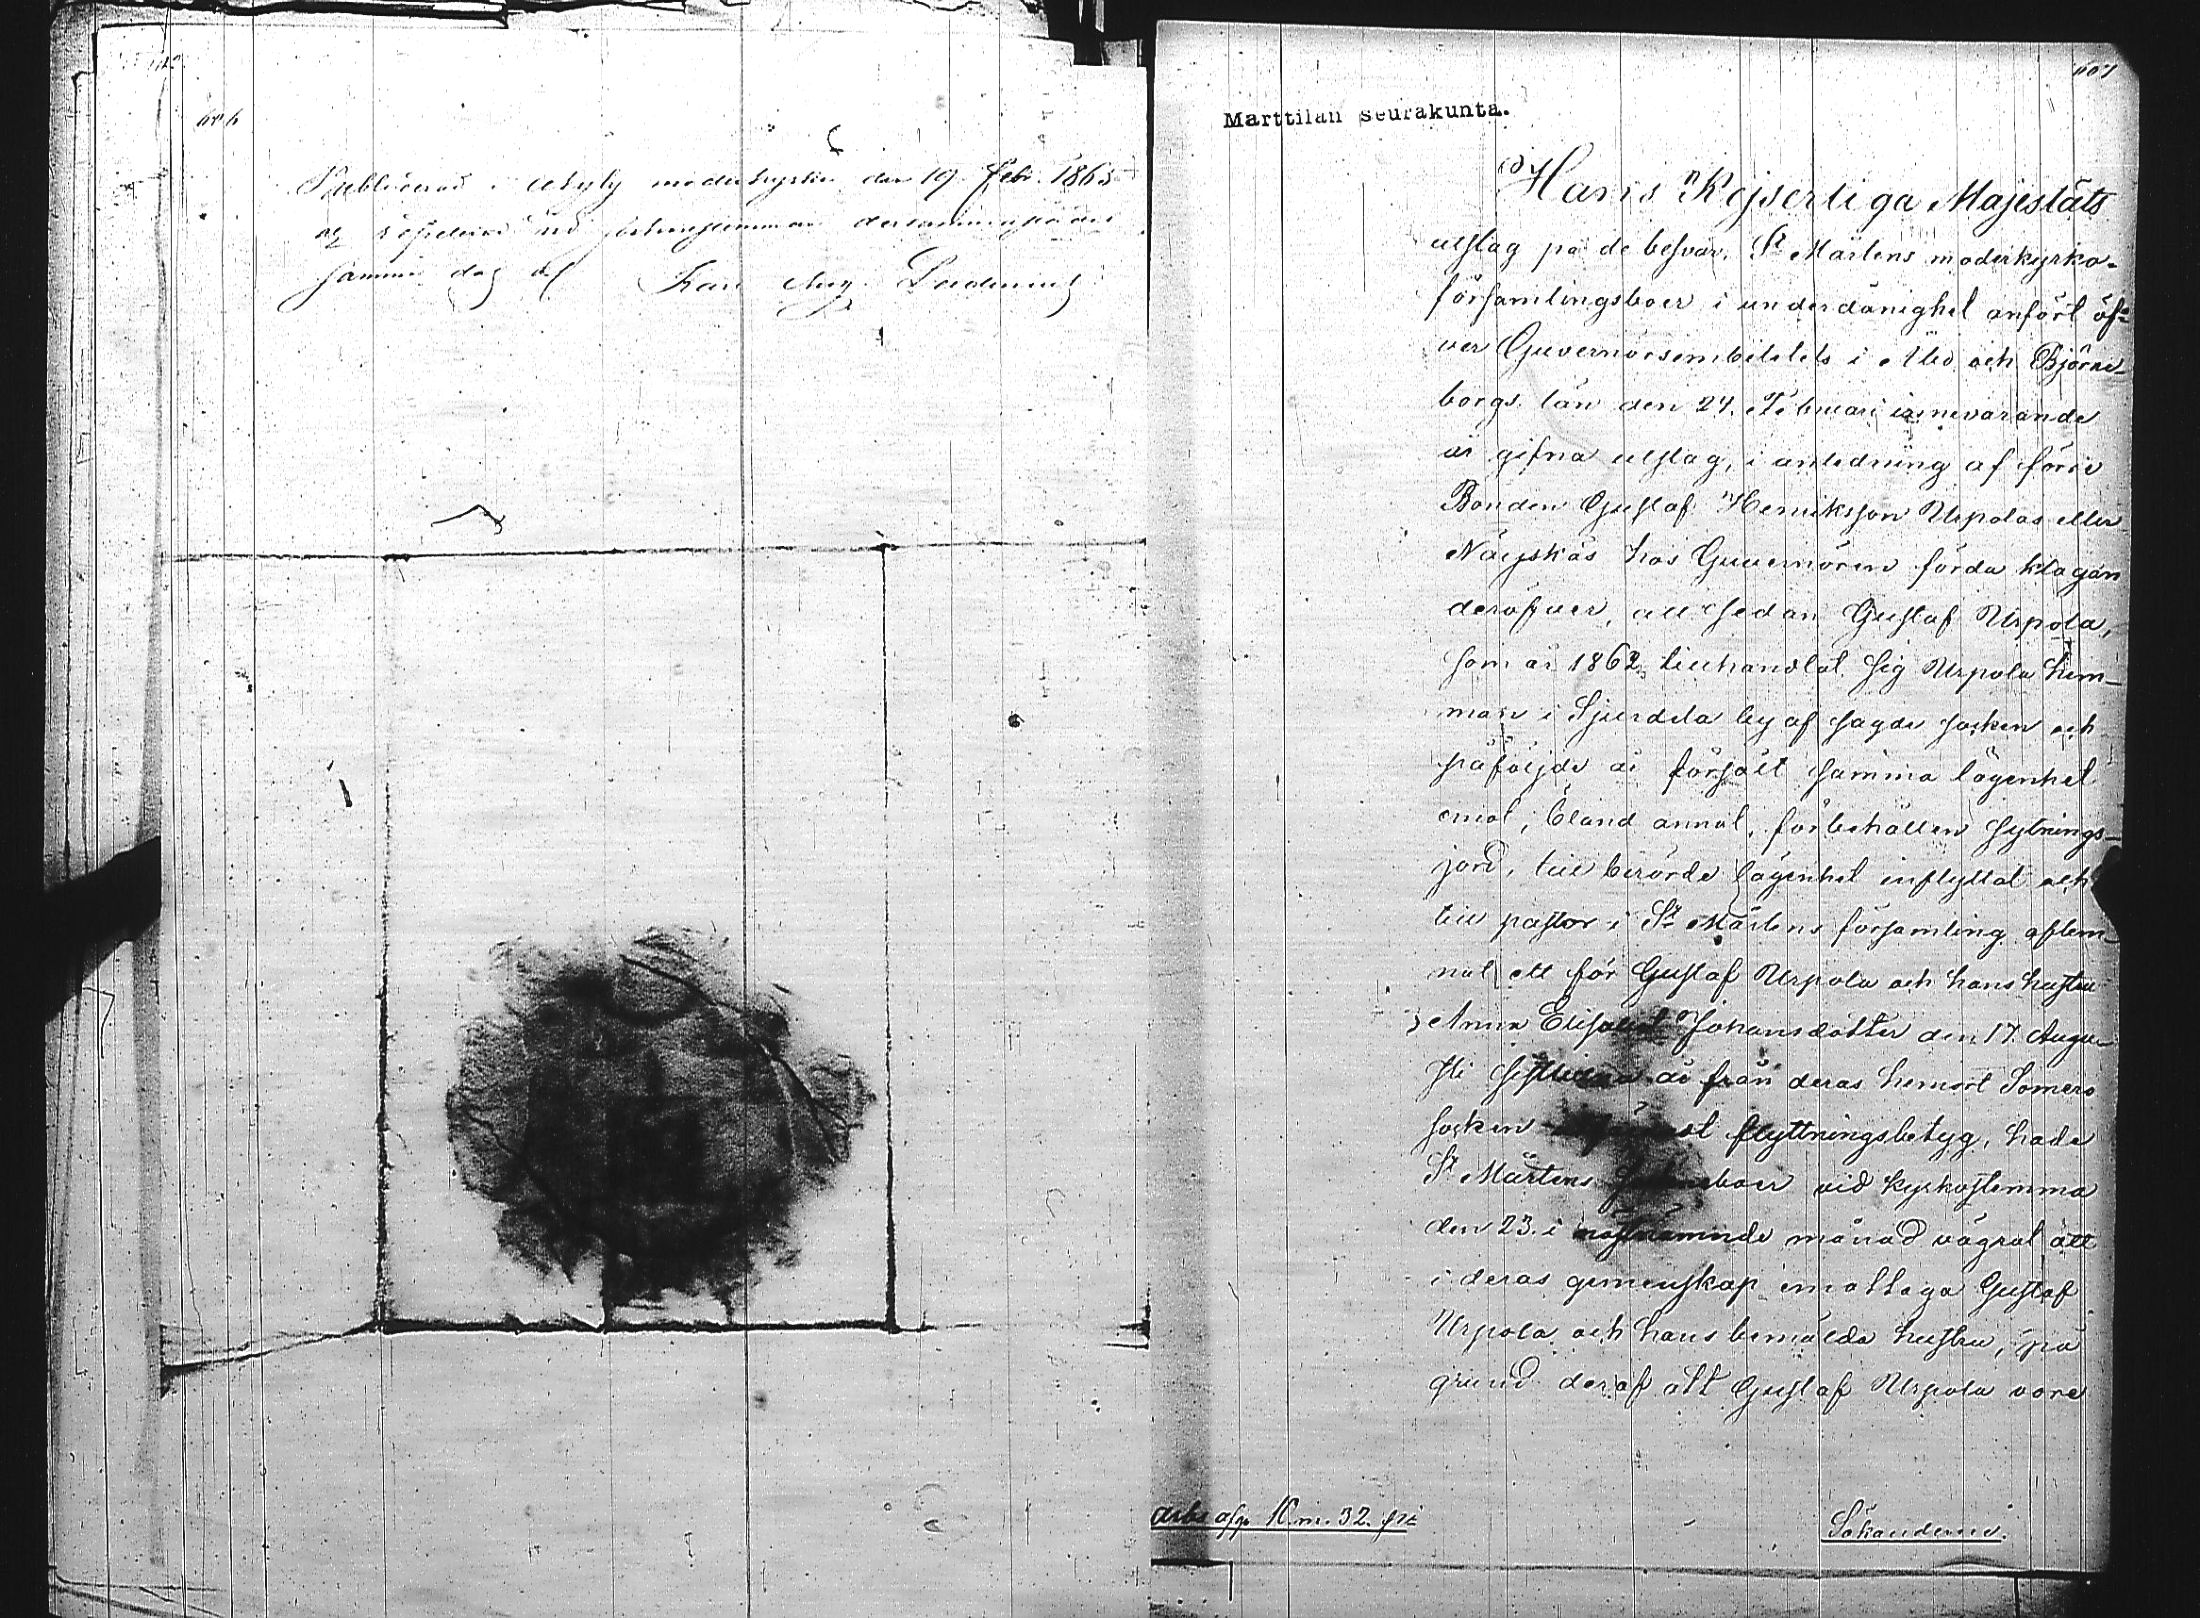 606
Publicerad i moderkyrka den 19 Febr. 1865
samma dag af Karl Aug.
607
Marttilan seurakunta.
Hans Kejserliga Majestäts
utslag på de besvär, St Mårtens moderkyrko-
församlingsboer i underdånighet anfört öf-
ver Guvernörsembetets i Åbo och Björne-
borgs län den 24. Februari innevarande
år gifna utslag, i anledning af förre
Bonden Gustaf Henriksson Urpolas eller
hos Guvernören förda klagan
deröfver, att sedan Gustaf Urpola,
som år 1862 tillhandlat sig Urpola hem-
man i Sjurdila by af sagde socken och
påföljde år försålt samma lägenhet
emot, bland annat, förbehållen sytnings-
jord, till berörde lägenhet inflyttat och
till pastor i St Mårtens församling aflem-
nat ett för Gustaf Urpola och hans hustru
Anna Elisabet Johansdotter den 17. Augu-
sti sistlidna år från deras hemort Somero
socken flyttningsbetyg, hade
St Mårtens Sockneboer vid kyrkostemma
den 23. i nästnämnde månad vägrat att
i deras gemenskap emottaga Gustaf
Urpola och hans bemälda hustru, på
grund deraf att Gustaf Urpola vore
afg. K. m. 32. p:i
Sökanderne.